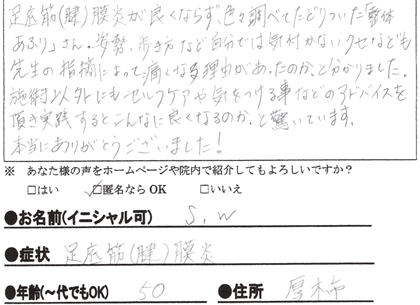 足底筋(腱)膜炎が良くならず、色々調べてたどりついた「整体
あふり」さん。姿勢、歩き方など自分では気付かないクセなども
先生の指摘によって痛くなる理由があったのか、と分かりました。
施術以外にもセルフケアや気をつける事などのアドバイスを
頂き実践するとこんなに良くなるのか、と驚いています。
本当にありがとうございました!
※ あなた様の声をホームページや院内で紹介してもよろしいですか?
□はい ☑匿名なら OK □いいえ
●お名前(イニシャル可) S,W
●症状 足底筋(腱)膜炎
●年齢(~代でもOK) 50 ●住所 厚木市